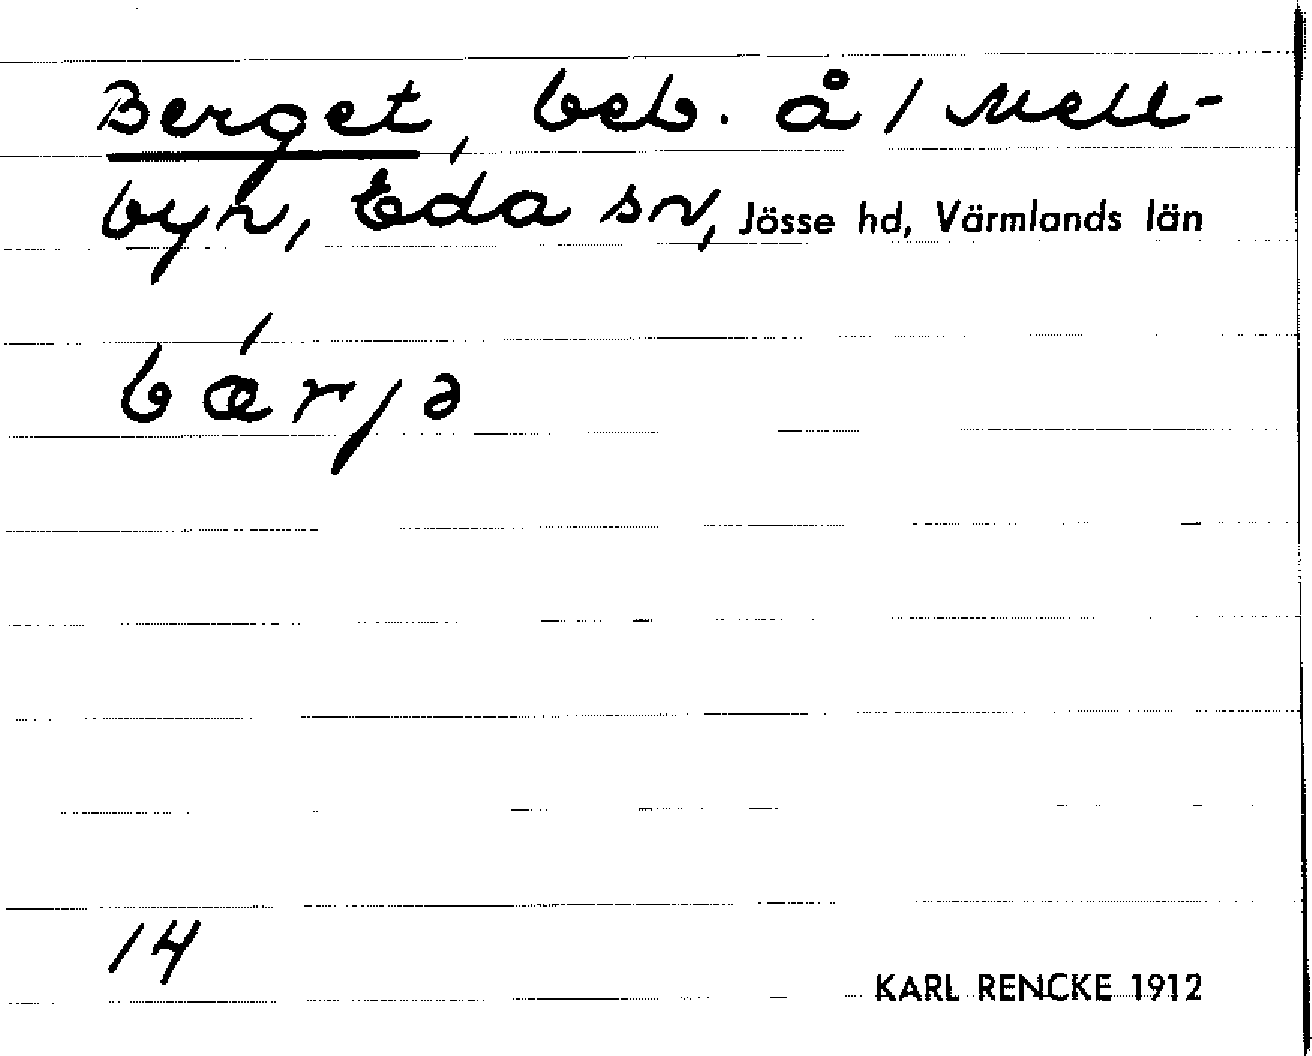 Berget, beb. å 1 Mell-
byn, Eda sn, Jösse hd, Värmlands län
bǽrjə
14
KARL RENCKE 1912